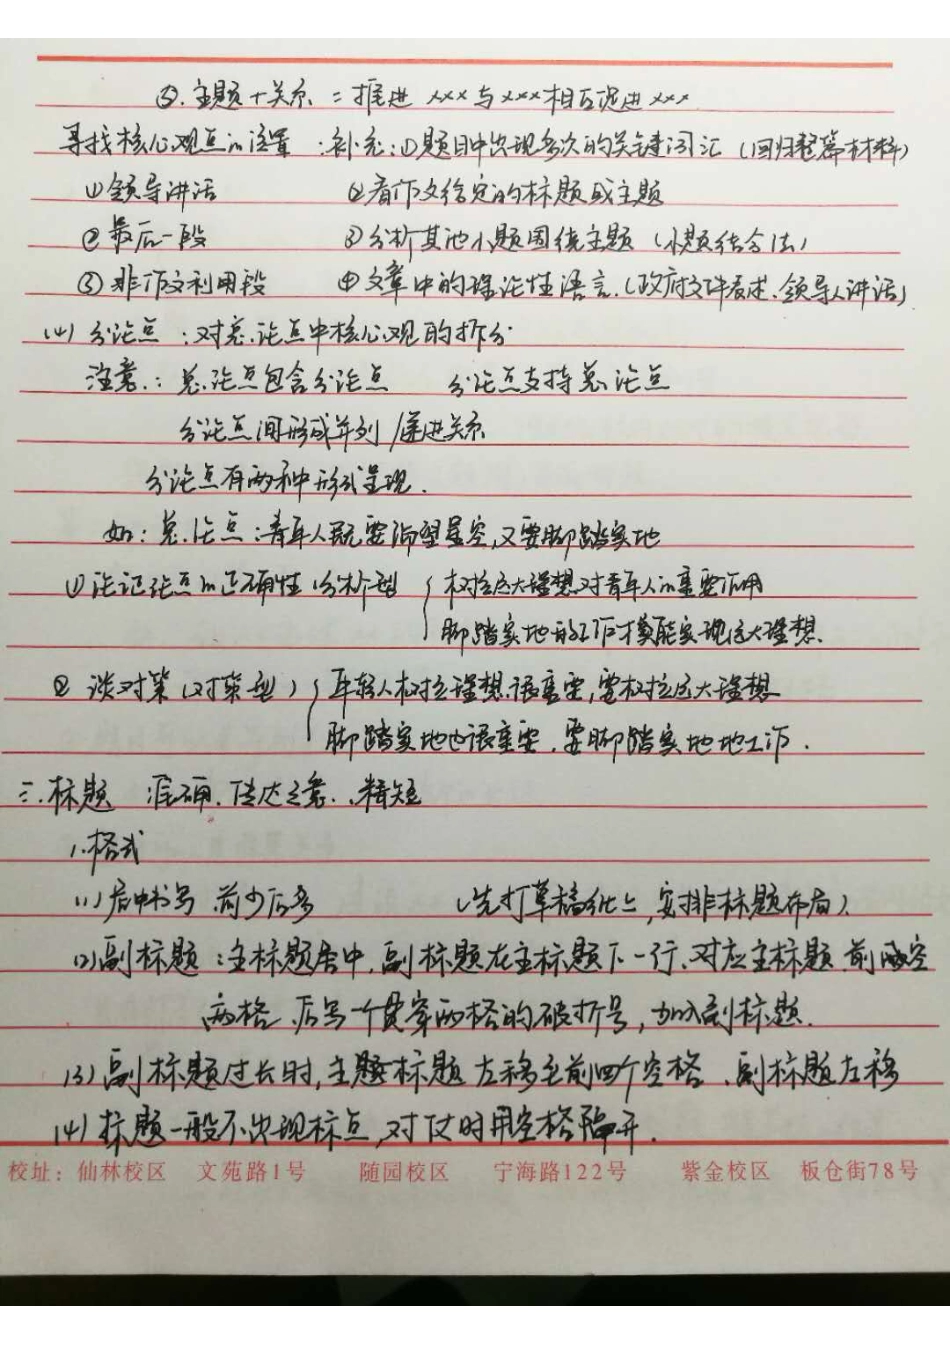 ⑤.主题+关系 = 推进 xxx与xxx相互促进 xxx
寻找核心观点的位置 :补充:①题目中出现多次的关键词汇 (回归整篇材料)
①领导讲话 ②看作文给定的标题或主题
②最后一段 ③分析其他小题围绕主题 (小题结合法)
③非作文利用段 ④文章中的理论性语言.(政府文件表述、领导人讲话)
(4) 分论点 :对总论点中核心观的拆分
注意:总论点包含分论点 分论点支持总论点
分论点间形成并列/递进关系
分论点有两种形式呈现.
如:总论点:青年人既要仰望星空,又要脚踏实地
①论证论点的正确性(分析型 { 树立远大理想对青年人的重要作用
脚踏实地的工作才真能实现远大理想.
② 谈对策(对策型) { 年轻人树立理想很重要,需树立远大理想
脚踏实地也很重要.要脚踏实地地工作.
三.标题 准确.传达立意.精短
1.格式
(1)居中书写 前少后多 (先打草稿纸上,安排标题布局)
(2)副标题:主标题居中,副标题在主标题下一行、对应主标题前减空
两格.后写一个贯穿两格的破折号,加入副标题.
(3)副标题过长时,主题标题左移至前四个空格、副标题左移
(4)标题一般不出现标点,对仗时用空格隔开.
校址: 仙林校区 文苑路1号 随园校区 宁海路122号 紫金校区 板仓街78号